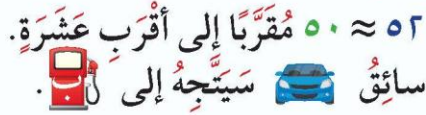 ٥٢ ≈ ٥٠ مُقَرَّبًا إلى أقْرَبِ عَشَرَةٍ.
سائِقُ سَيَتَّجِهُ إلى ب.